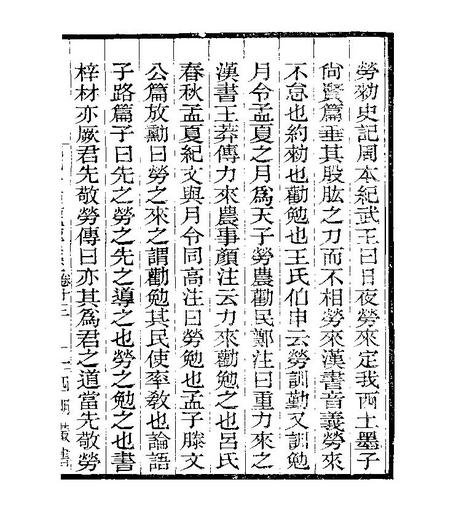 勞勑史記周本紀武王曰日夜勞來定我西土墨子
尙賢篇垂其股肱之力而不相勞來漢書音義勞來
不怠也約勑也勸勉也王氏伯申云勞訓勤又訓勉
月令孟夏之月爲天子勞農勸民鄭注曰重力來之
漢書王莽傳力來農事顏注云力來勸勉之也呂氏
春秋孟夏紀文與月令同高注曰勞勉也孟子滕文
公篇放勳曰勞之來之謂勸勉其民使率敎也論語
子路篇子曰先之勞之先之導之也勞之勉之也書
梓材亦厥君先敬勞傳曰亦其爲君之道當先敬勞
卷十三
四明叢書